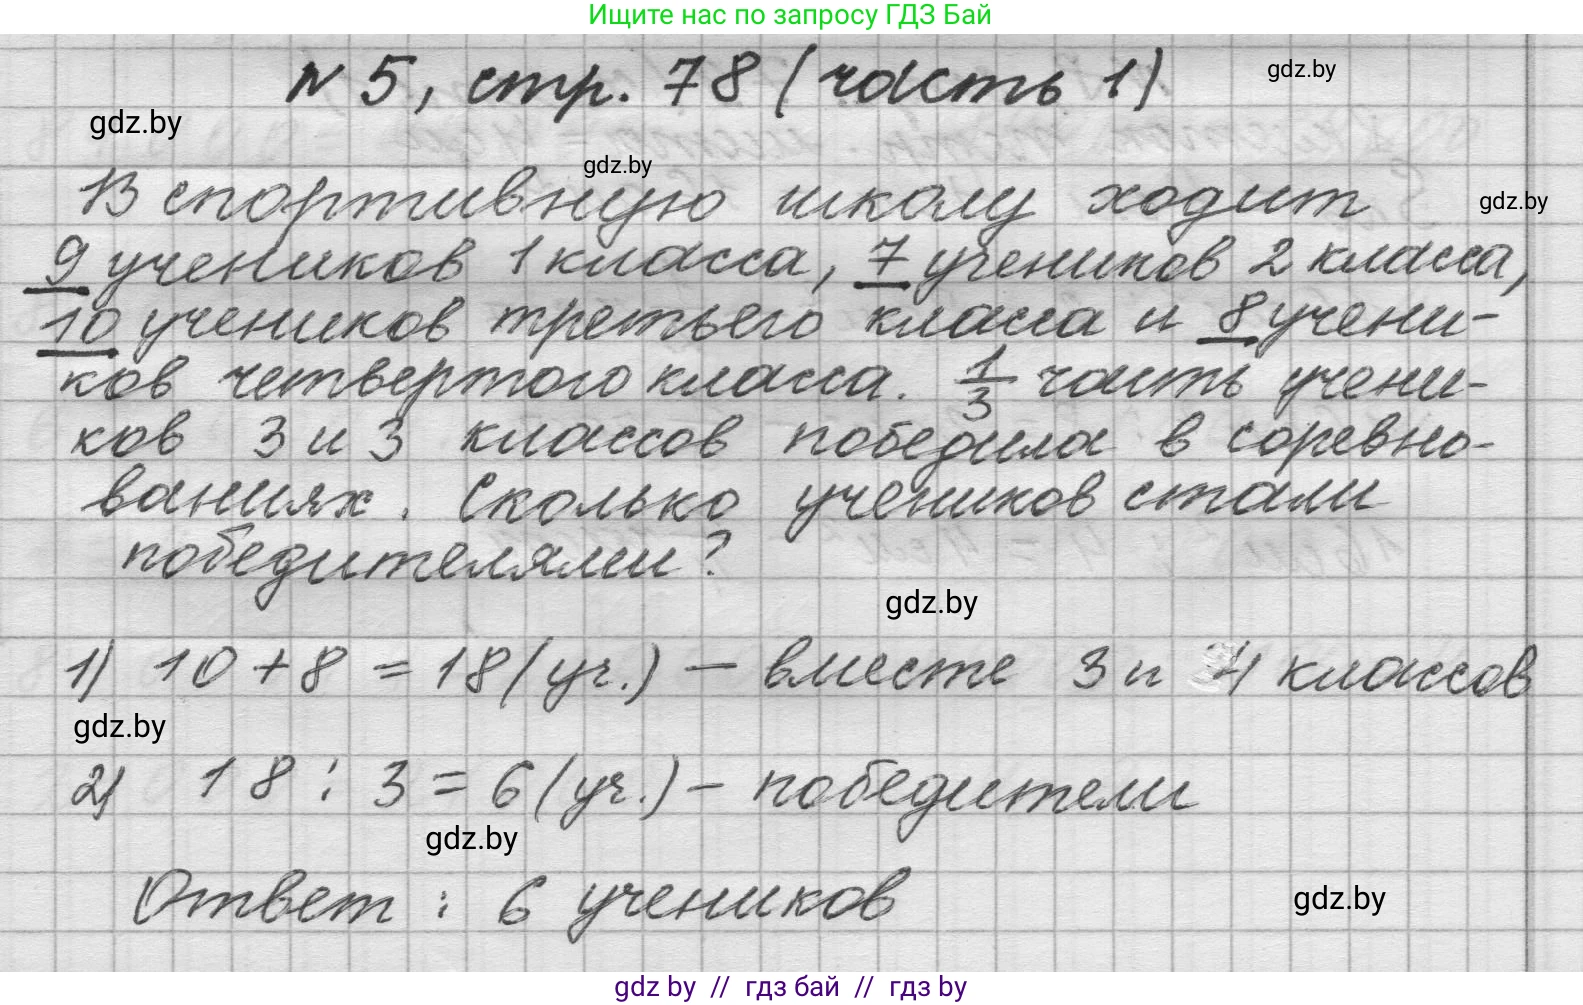 Ищите нас по запросу ГДЗ Бай
N 5, стр. 78 (часть 1)
gdz.by
gdz.by
gdz.by
В спортивную школу ходит
gdz.by
9 учеников 1 класса, 7 учеников 2 класса,
10 учеников третьего класса и 8 учени-
ков четвертого класса. 1/3 часть учени-
ков 3 и 3 классов победила в соревно-
ваниях. Сколько учеников стали
победителями?
gdz.by
1) 10 + 8 = 18 (уч.) - вместе 3 и 4 классов
gdz.by
2) 18 : 3 = 6 (уч.) - победители
gdz.by
Ответ: 6 учеников
gdz.by
gdz by // гдз бай // гдз by